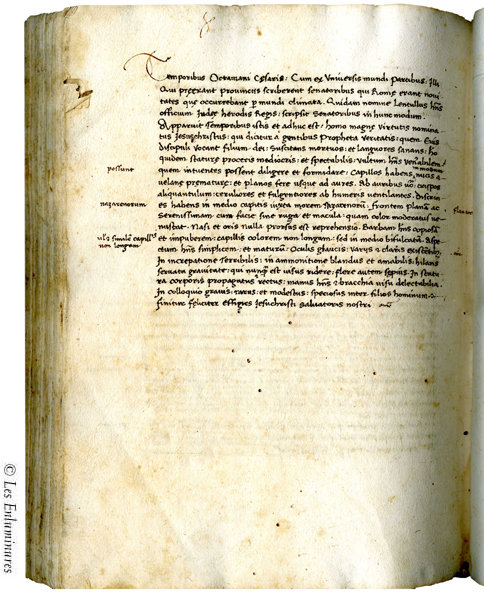 Temporibus Octaviani Cesaris: Cum ex Universis mundi Partibus: Illi
Qui preerant Provinciis scriberent senatoribus qui Rome erant novi
tates que occurrebant p mundi climata. Quidam nomine Lentullus hns
officium Iudex herodis Regis: scripsit Senatoribus in hunc modum.
Apparuit temporibus istis et adhuc est: homo magne Virtutis nomina
tus Iesuschristus: qui dicitur a gentibus Propheta veritatis: quem Eius
discipuli vocant filium dei: Suscitans mortuos: et languores sanans: ho
quidem stature proceris mediocris: et spectabilis: vultum hns venerabilem
quem intuentes possent diligere et formidare: Capillos habens nucis a
possunt
velane premature: et planos fere usque ad aures. Ab auribus vo: crispos
aliquantulum: ceruliores et fulgentiores ab humeris ventilantes. Discrim
nazarenorum
es habens in medio capitis iuxta morem Nazarenorum: frontem planam ac
serenissimam: cum facie sine ruga et macula: quam color moderatus ve
nustat. Nasi et oris nulla prorsus est reprehensio. Barbam hns copiosam
et impuberem: capillis colorem non longam: sed in medio bifulcatam. Aspe
non longam
ctum hns simplicem: et maturum: Oculis glaucis: varys: et claris existentibus
In increpatione terribilis: in ammonitione blandus et amabilis: hilaris
servata gravitate: qui nunq est visus ridere: flere autem sepius. In statu
ra corporis propagatus rectus: manus hns et bracchia visu delectabilia.
In colloquio gravis: rarus: et modestus: speciosus inter filios hominum:
finitur feliciter effigies Iesuchristi salvatoris nostri
© Les Enluminures